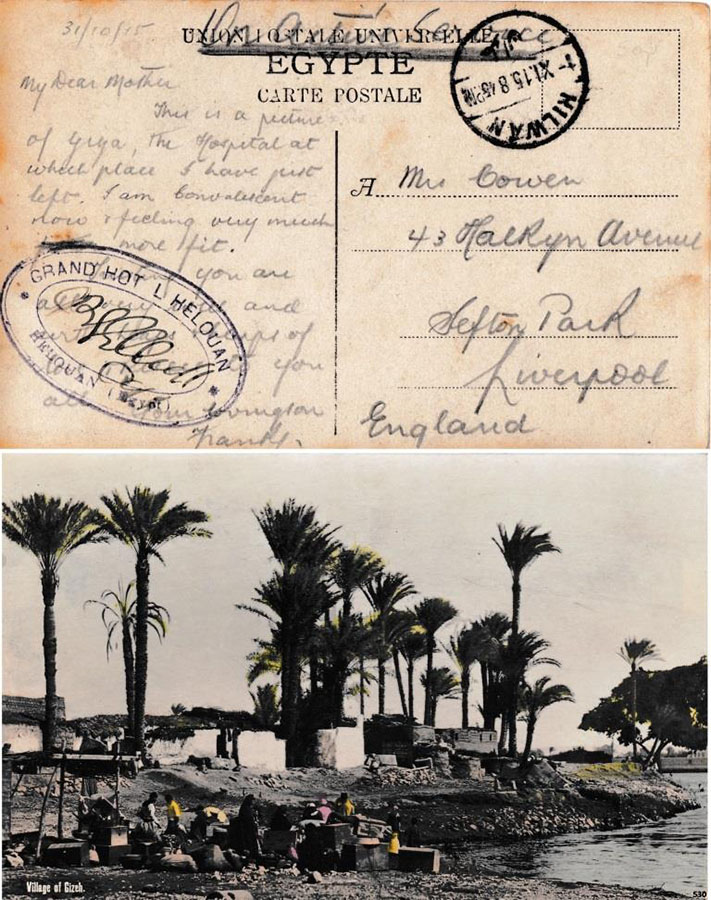 31/10/15.
On Active Service
UNION POSTALE UNIVERSELLE
EGYPTE
CARTE POSTALE
HILWÂN
XI.15.8 45PM
My Dear Mother
This is a picture
of Giza, the Hospital at
which place I have just
left. I am Convalescent
now & feeling very much
more fit.
you are
all very and
of
you
all Your loving son
Frank.
GRAND HOT L HELOUAN
HELOUAN (Egypt)
A Mrs Cowen
43 Halkyn Avenue
Sefton Park
Liverpool
England
Village of Gizeh.
530